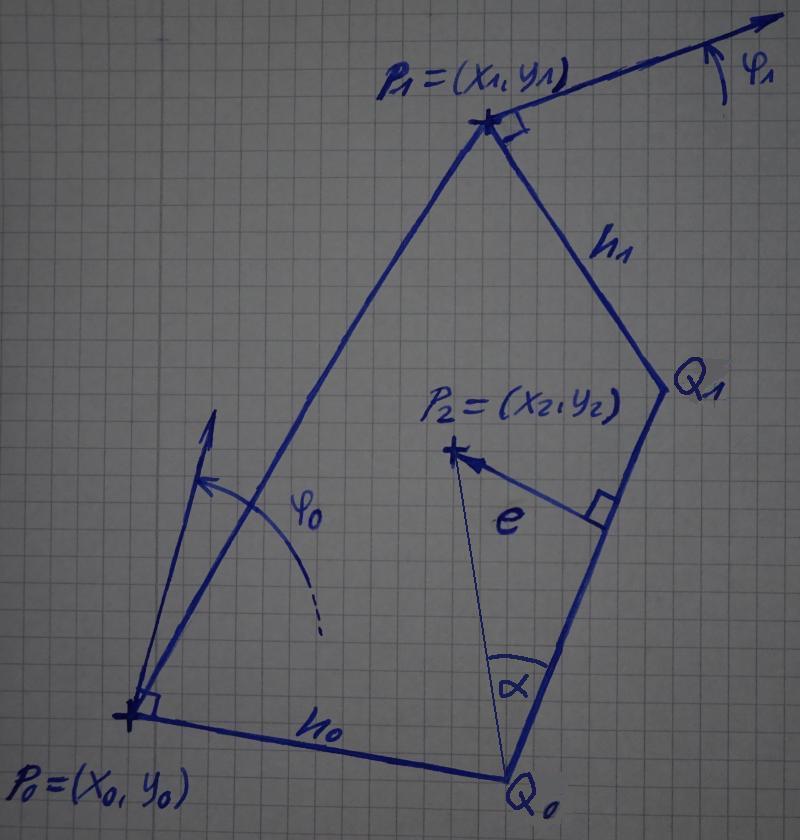 P₁=(x₁,y₁)
φ₁
h₁
Q₁
P₂=(x₂,y₂)
φ₀
e
α
h₀
P₀=(x₀,y₀)
Q₀